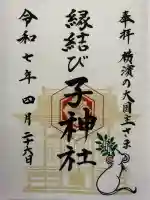 奉拝 横濱の大国主さま
縁結び
子神社
令和七年四月二十六日